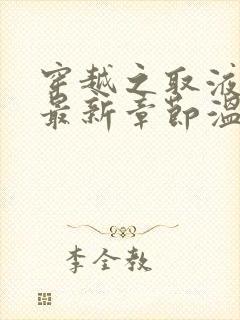 穿越之取液
最新章节温
李全教